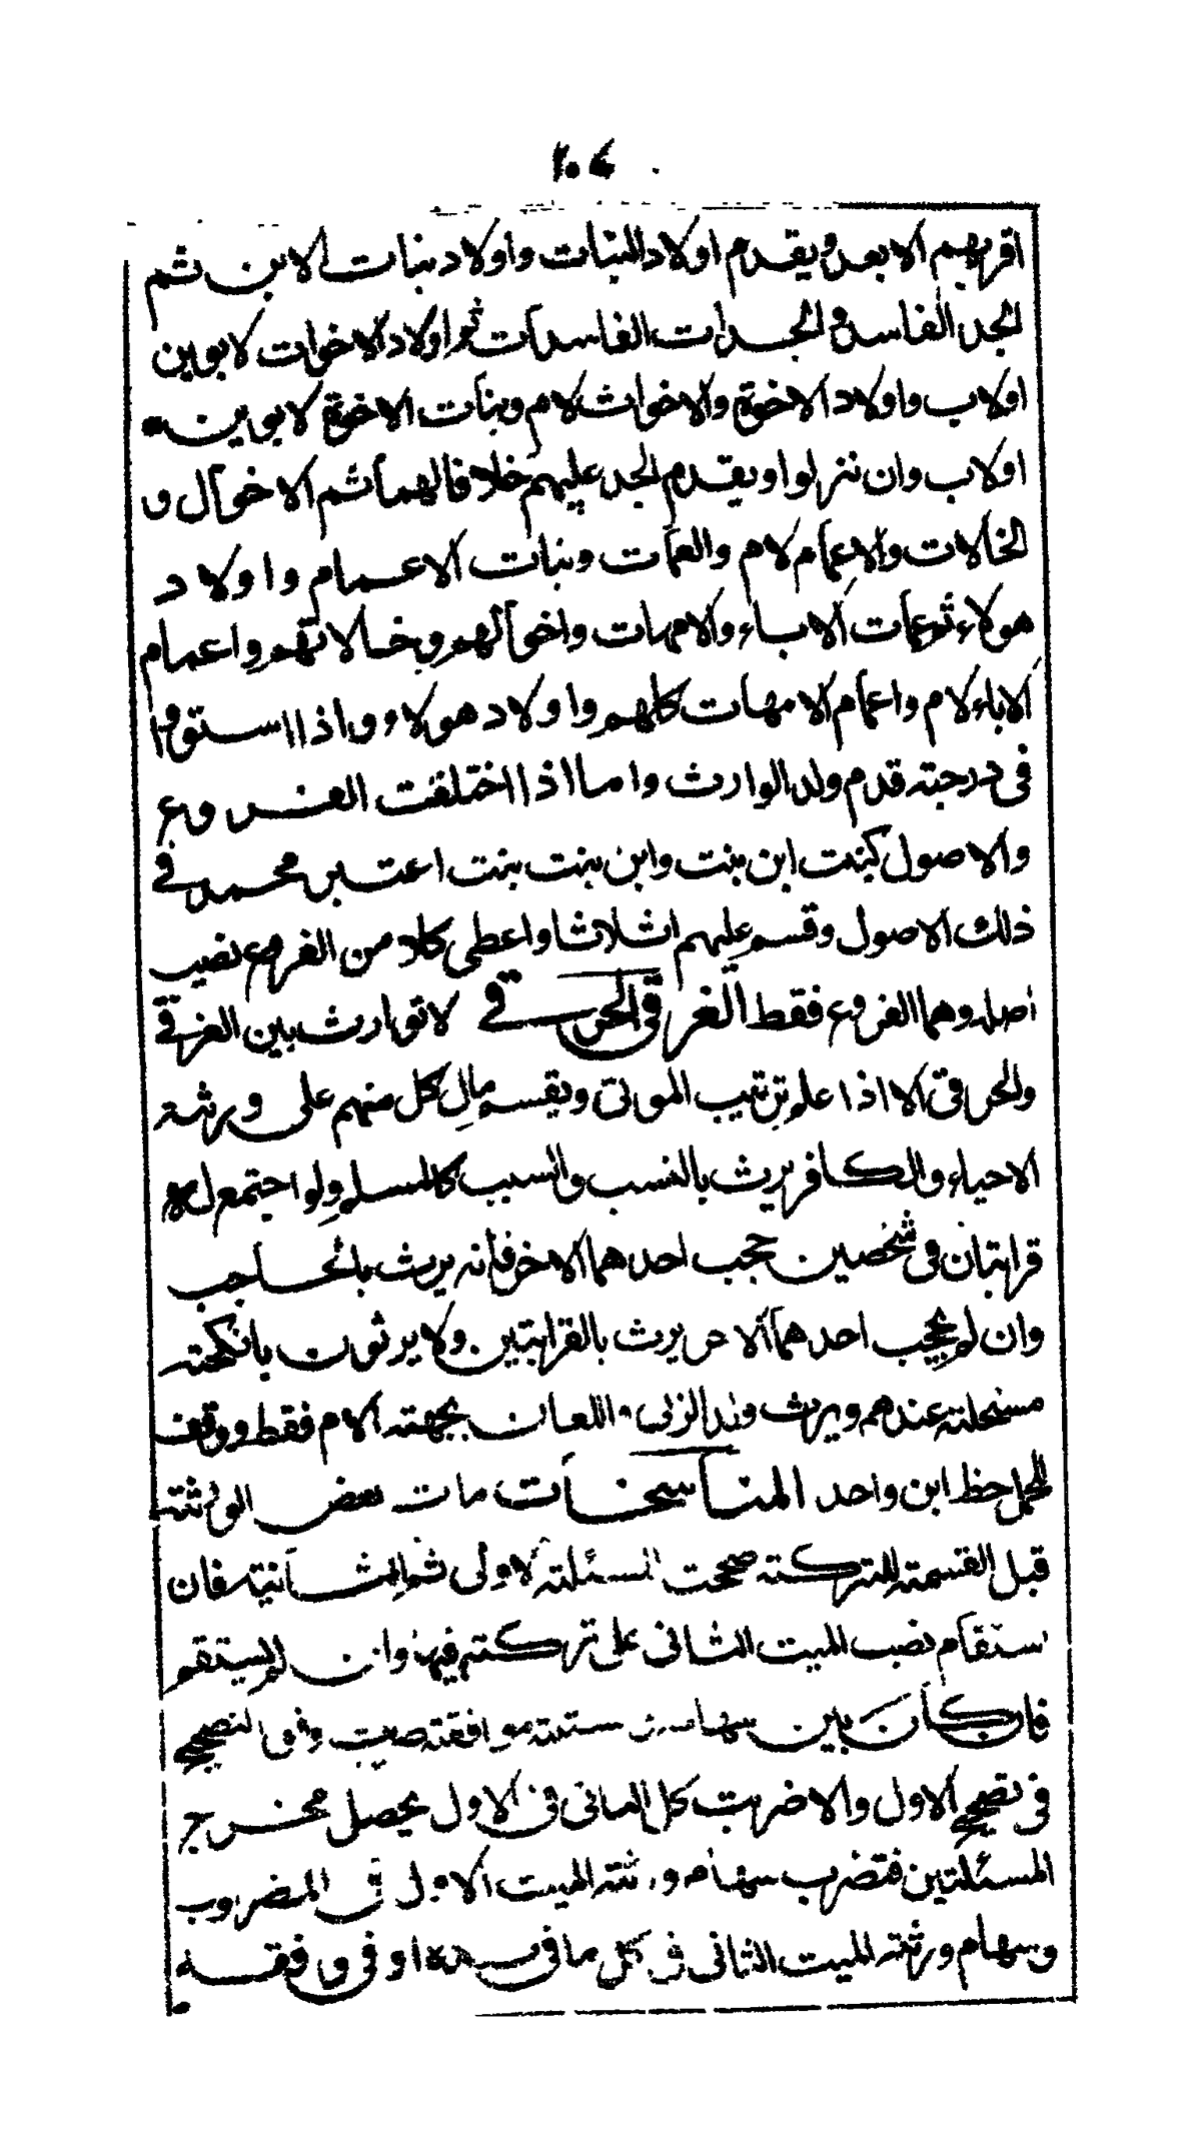 ١٠٤
اقربهم الابعد ويقدم اولاد البنات واولاد بنات الابن ثم
الجد الفاسد والجدات الفاسدات ثم اولاد الاخوات لابوين
اولاب واولاد الاخوة والاخوات لام وبنات الاخوة لابوين
اولاب وان نزلوا ويقدم الجد عليهم خلافا لهما ثم الاخوال و
الخالات والاعمام لام والعمات وبنات الاعمام واولاد
هولاء ثم عمات الاباء والامهات واخوالهم وخالاتهم واعمام
الاباء لام واعمام الامهات كلهم واولاد هولاء واذا استووا
فى درجته قدم ولد الوارث واما اذا اختلفت الفروع
والاصول كبنت ابن بنت وابن بنت بنت اعتبر محمد فى
ذلك الاصول وقسم عليهم اثلاثا واعطى كلا من الفروع نصيب
اصله وهما الفروع فقط الغرقى الحرقى لا توارث بين الغرقى
والحرقى الا اذا علم ترتيب الموتى ويقسم مال كل منهم على ورثته
الاحياء والكافر يرث بالنسب والسبب كالمسلم ولو اجتمع له
قرابتان فى شخصين حجب احدهما الاخر فانه يرث بالحاجب
وان لم يحجب احدهما الاخر يرث بالقرابتين ولا يرثون بانكحته
مستحلة عندهم ويرث ولد الزنى واللعان بجهته الام فقط ووقف
للحمل حظ ابن واحد المناسخات مات بعض الورثته
قبل القسمته للتركته صححت المسئلته الاولى ثم الثانيته فان
ستقام نصب الميت الثانى على تركته فبها وان لم يستقم
فان كان بين سهامه ... مسئلته موافقته ضربت وفق التصحيح
فى تصحيح الاول والا ضربت كل الثانى فى الاول يحصل مخرج
المسئلتين فتضرب سهام ورثته الميت الاول فى المضروب
وسهام ورثته الميت الثانى فى كل ما فى يده او فى وفقه